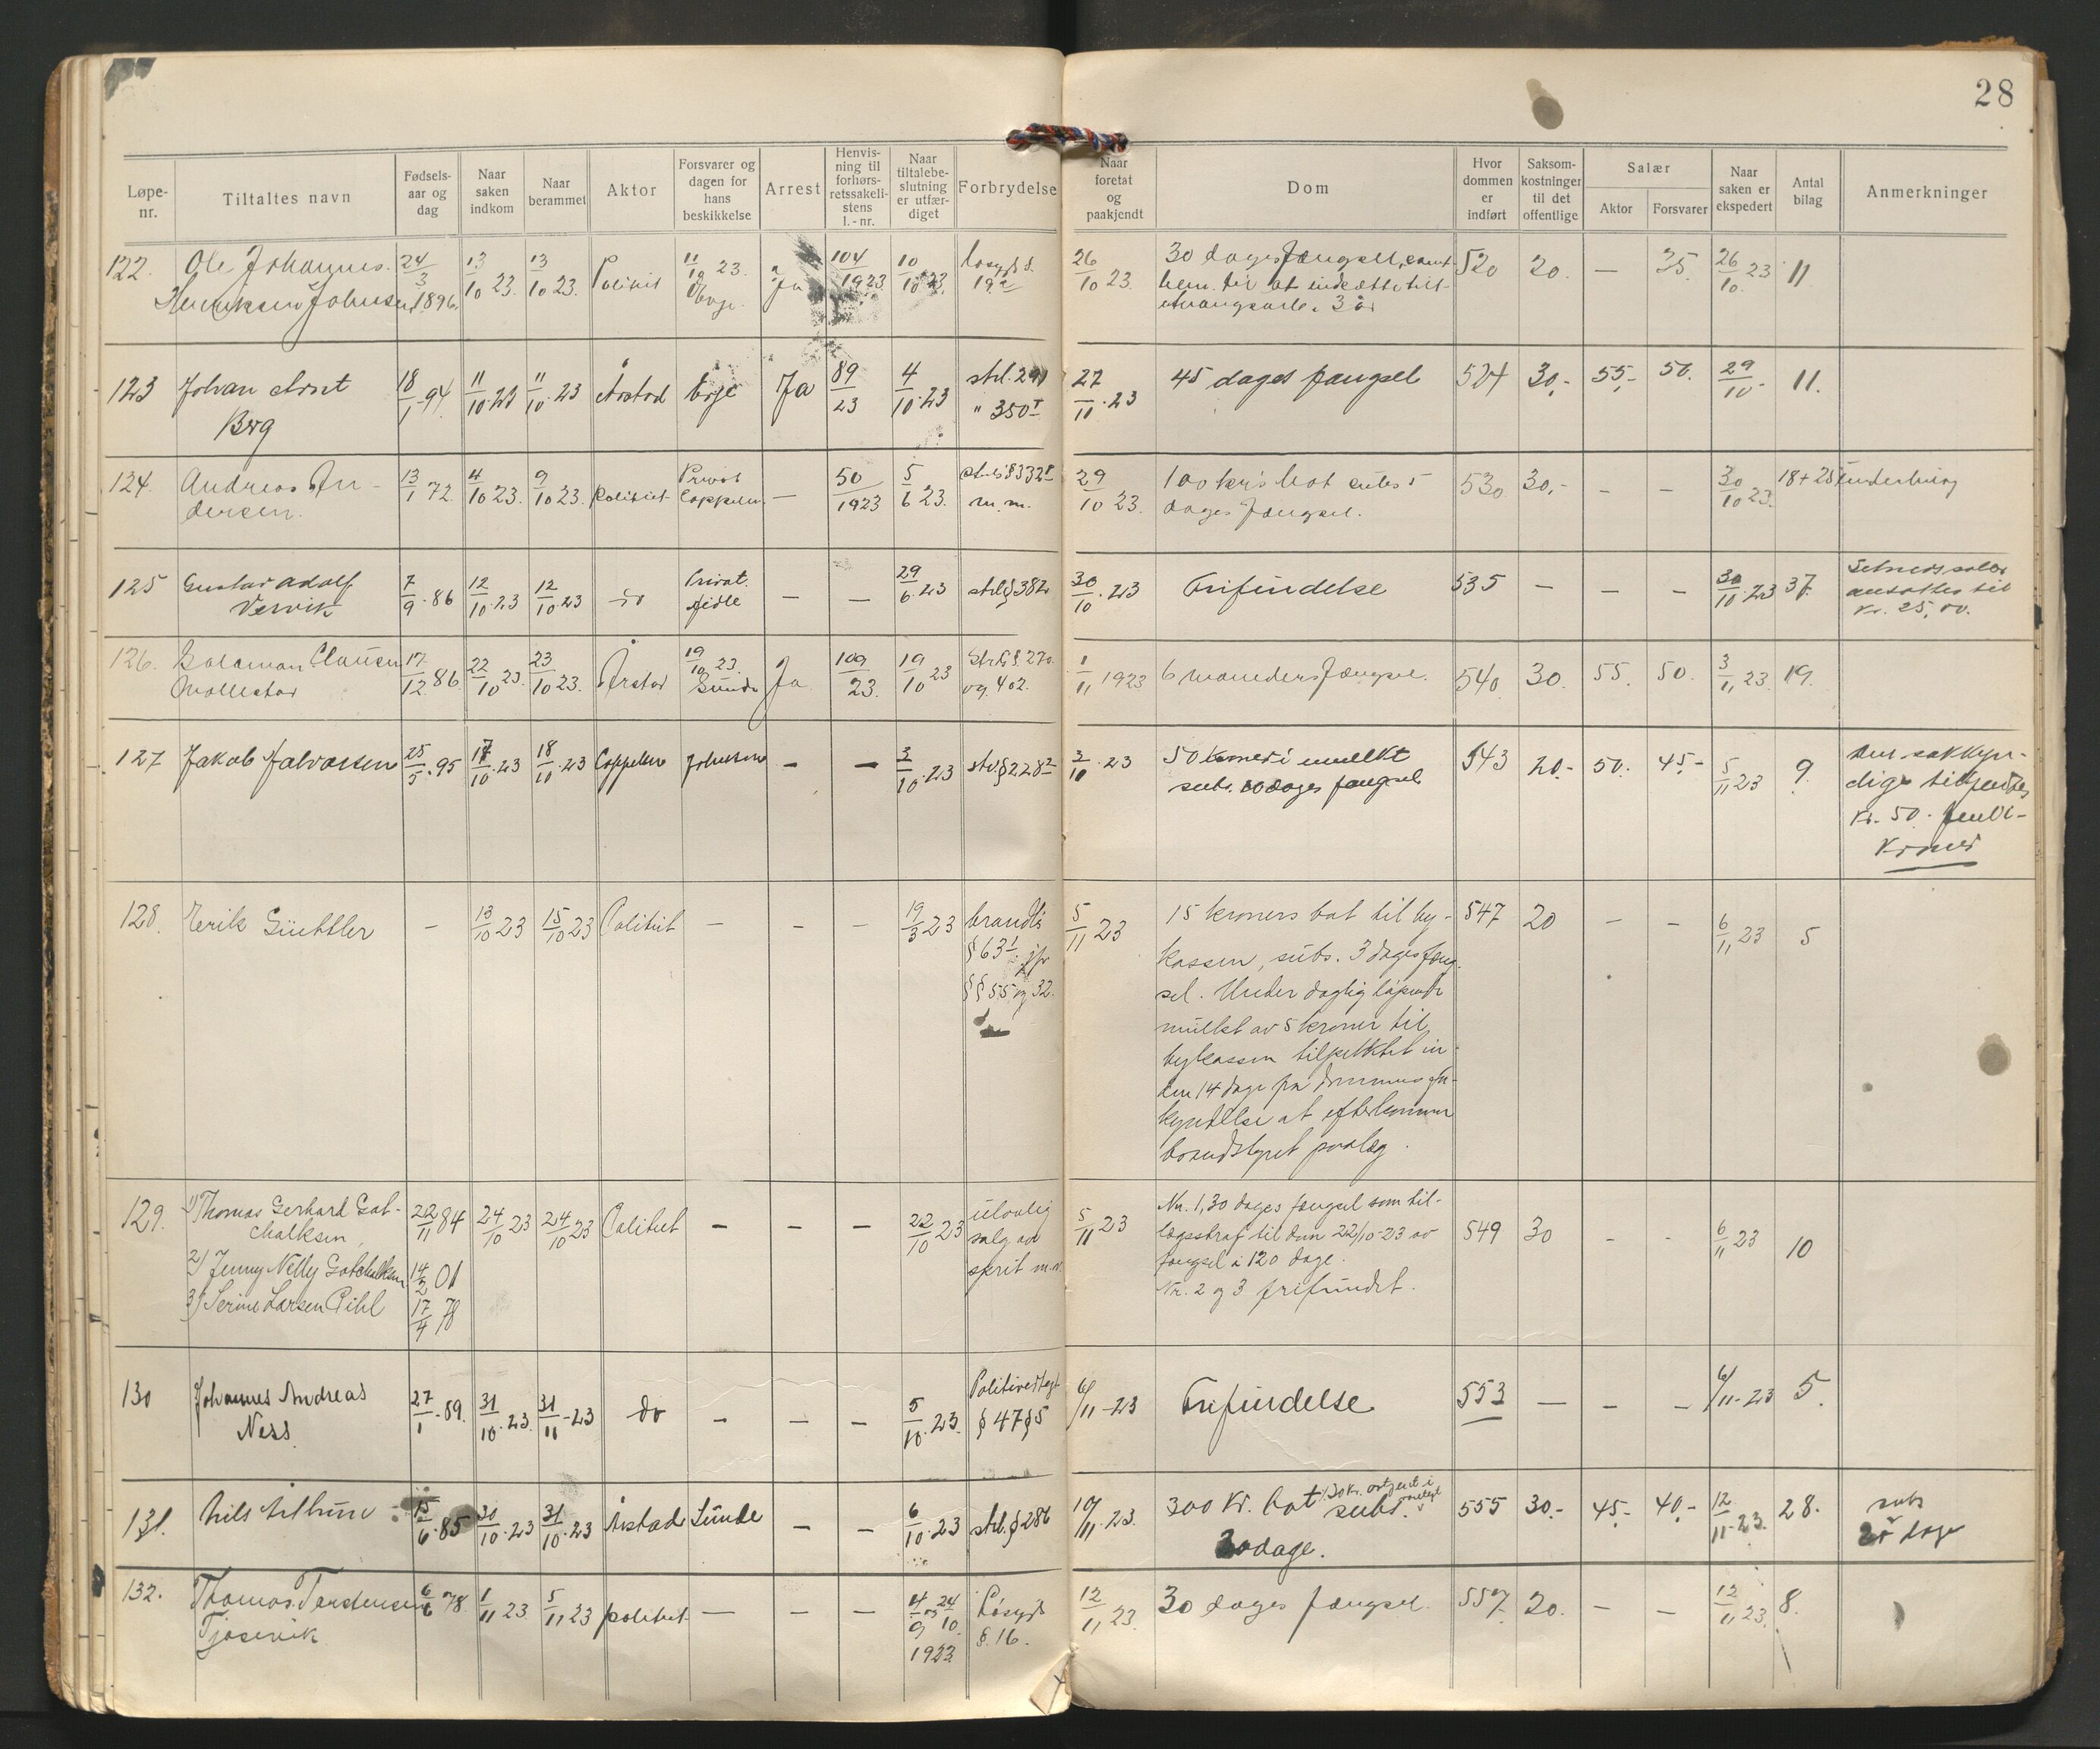 28
Løpe-
nr.
Tiltaltes navn
Fødsels-
aar og
dag
Naar
saken
indkom
Naar
berammet
Aktor
Forsvarer og
dagen for
hans
beskikkelse
Arrest
Henvis-
ning til
forhørs-
retssakeli-
stens
l.-nr.
Naar
tiltalebe-
slutning
er utfær-
diget
Forbrydelse
Naar
foretat
og
paakjendt
Dom
Hvor
dommen
er
indført
Saksom-
kostninger
til det
offentlige
Salær
Aktor
Forsvarer
Naar
saken er
ekspedert
Antal
bilag
Anmerkninger
122. Ole Johannes 24/3 13/10 23. 13/10 23. Politiet 11/10 23. Ja 104/1923 10/10 23. løsgjl. §
Henriksen Johnsen 1896. Eoje 19
26/10 23. 30 dages fængsel, samt 520 20. — 35. 26/10 23 11
hem. til at indsættes i
tvangsarb. i 3 år
123 Johan Arnt 18/1 94 11/10 23 11/10 23 Årstad Eoje Ja 89/23 4/10 23 strl. 291
Berg " 350
27/10 23 45 dages fængsel 524 30,- 55,- 50. 29/10 11.
124. Andreas An- 13/1 72. 4/10 23. 9/10 23. Politiet Privat — 50/1923 5/6 23. strl. § 332
dersen. Coppelen. m.m.
29/10 23. 100 kr.s bot subs 5 530 30,- — — 30/10 23. 18+28
dages fængsel.
125 Gustav Adolf 7/9 86 12/10 23 12/10 23 do Privat. — — 29/6 23 strl § 382
Vervik
30/10 23 Frifindelse 535 — — — 30/10 23 37.
ansattes til
Kr. 25,00.
126. Salamon Clausen 17/12 86 22/10 23. 23/10 23. Årstad 19/10 23. Ja 109/23. 19/10 23 Strl § 270
Mollestad Sunde og 402.
1/11 1923 6 maaneders fængsel. 540 30. 55. 50. 3/11 23. 19.
127 Jakob Jalvorsen 25/5 95 17/10 23 18/10 23 Coppelen Johnsen — — 3/10 23 strl § 228
3/11 23 50 kroner i mulkt 543 20,- 50,- 45,- 5/11 23 9.
subs. 10 dages fængsel
Den sakkyn-
dige tilkjendtes
Kr. 50. femti-
Kroner
128. Erik Güettler — 13/10 23 15/10 23 Politiet — — — 19/3 23 brandl.
§ 63 jfr
§§ 55 og 32.
5/11 23 15 kroners bot til by- 547 20 — — 6/11 23 5
kassen, subs. 3 dages fæng-
sel. Under daglig løpende
mulkt av 5 kroner til
bykassen tilpliktet in-
den 14 dage fra dommens for-
kyndelse at efterkomme
brandstyret paalæg.
129. 1) Thomas Gerhard Got- 22/11 84 24/10 23 24/10 23 Politiet — — — 22/10 23 ulovlig
chalksen, salg av
2) Jenny Nelly Gotchalksen 14/2 01 sprit m.v.
3) Serine Larsen Pihl 17/4 78
5/11 23 Nr. 1, 30 dages fængsel som til- 549 30 - - 6/11 23 10
lægsstraf til dom 22/10-23 av
fængsel i 120 dage.
Nr. 2 og 3 frifundet.
130 Johannes Andreas 27/1 89. 31/10 23. 31/10 23 do — — — 5/10 23. Politivedtegt
Ness. § 47 § 5
6/11-23 Frifindelse 553 — — — 6/11-23 5.
131. Nils Nilhun 15/6 85 30/10 23 31/10 23 Årstad Sunde — — 6/10 23 strl. § 286
10/11 23. 300 Kr. bot subs. 555 30,- 45,- 40,- 12/11 23. 28. subs
30 dage. dage
132. Thomas Torstensen 6/6 78. 1/11 23 5/11 23 politiet — — — 4/9 og 24/10 Løsgjl.
Tjosevik 1923 § 16.
12/11 23. 30 dages fængsel. 557 20. — — 12/11 23. 8.